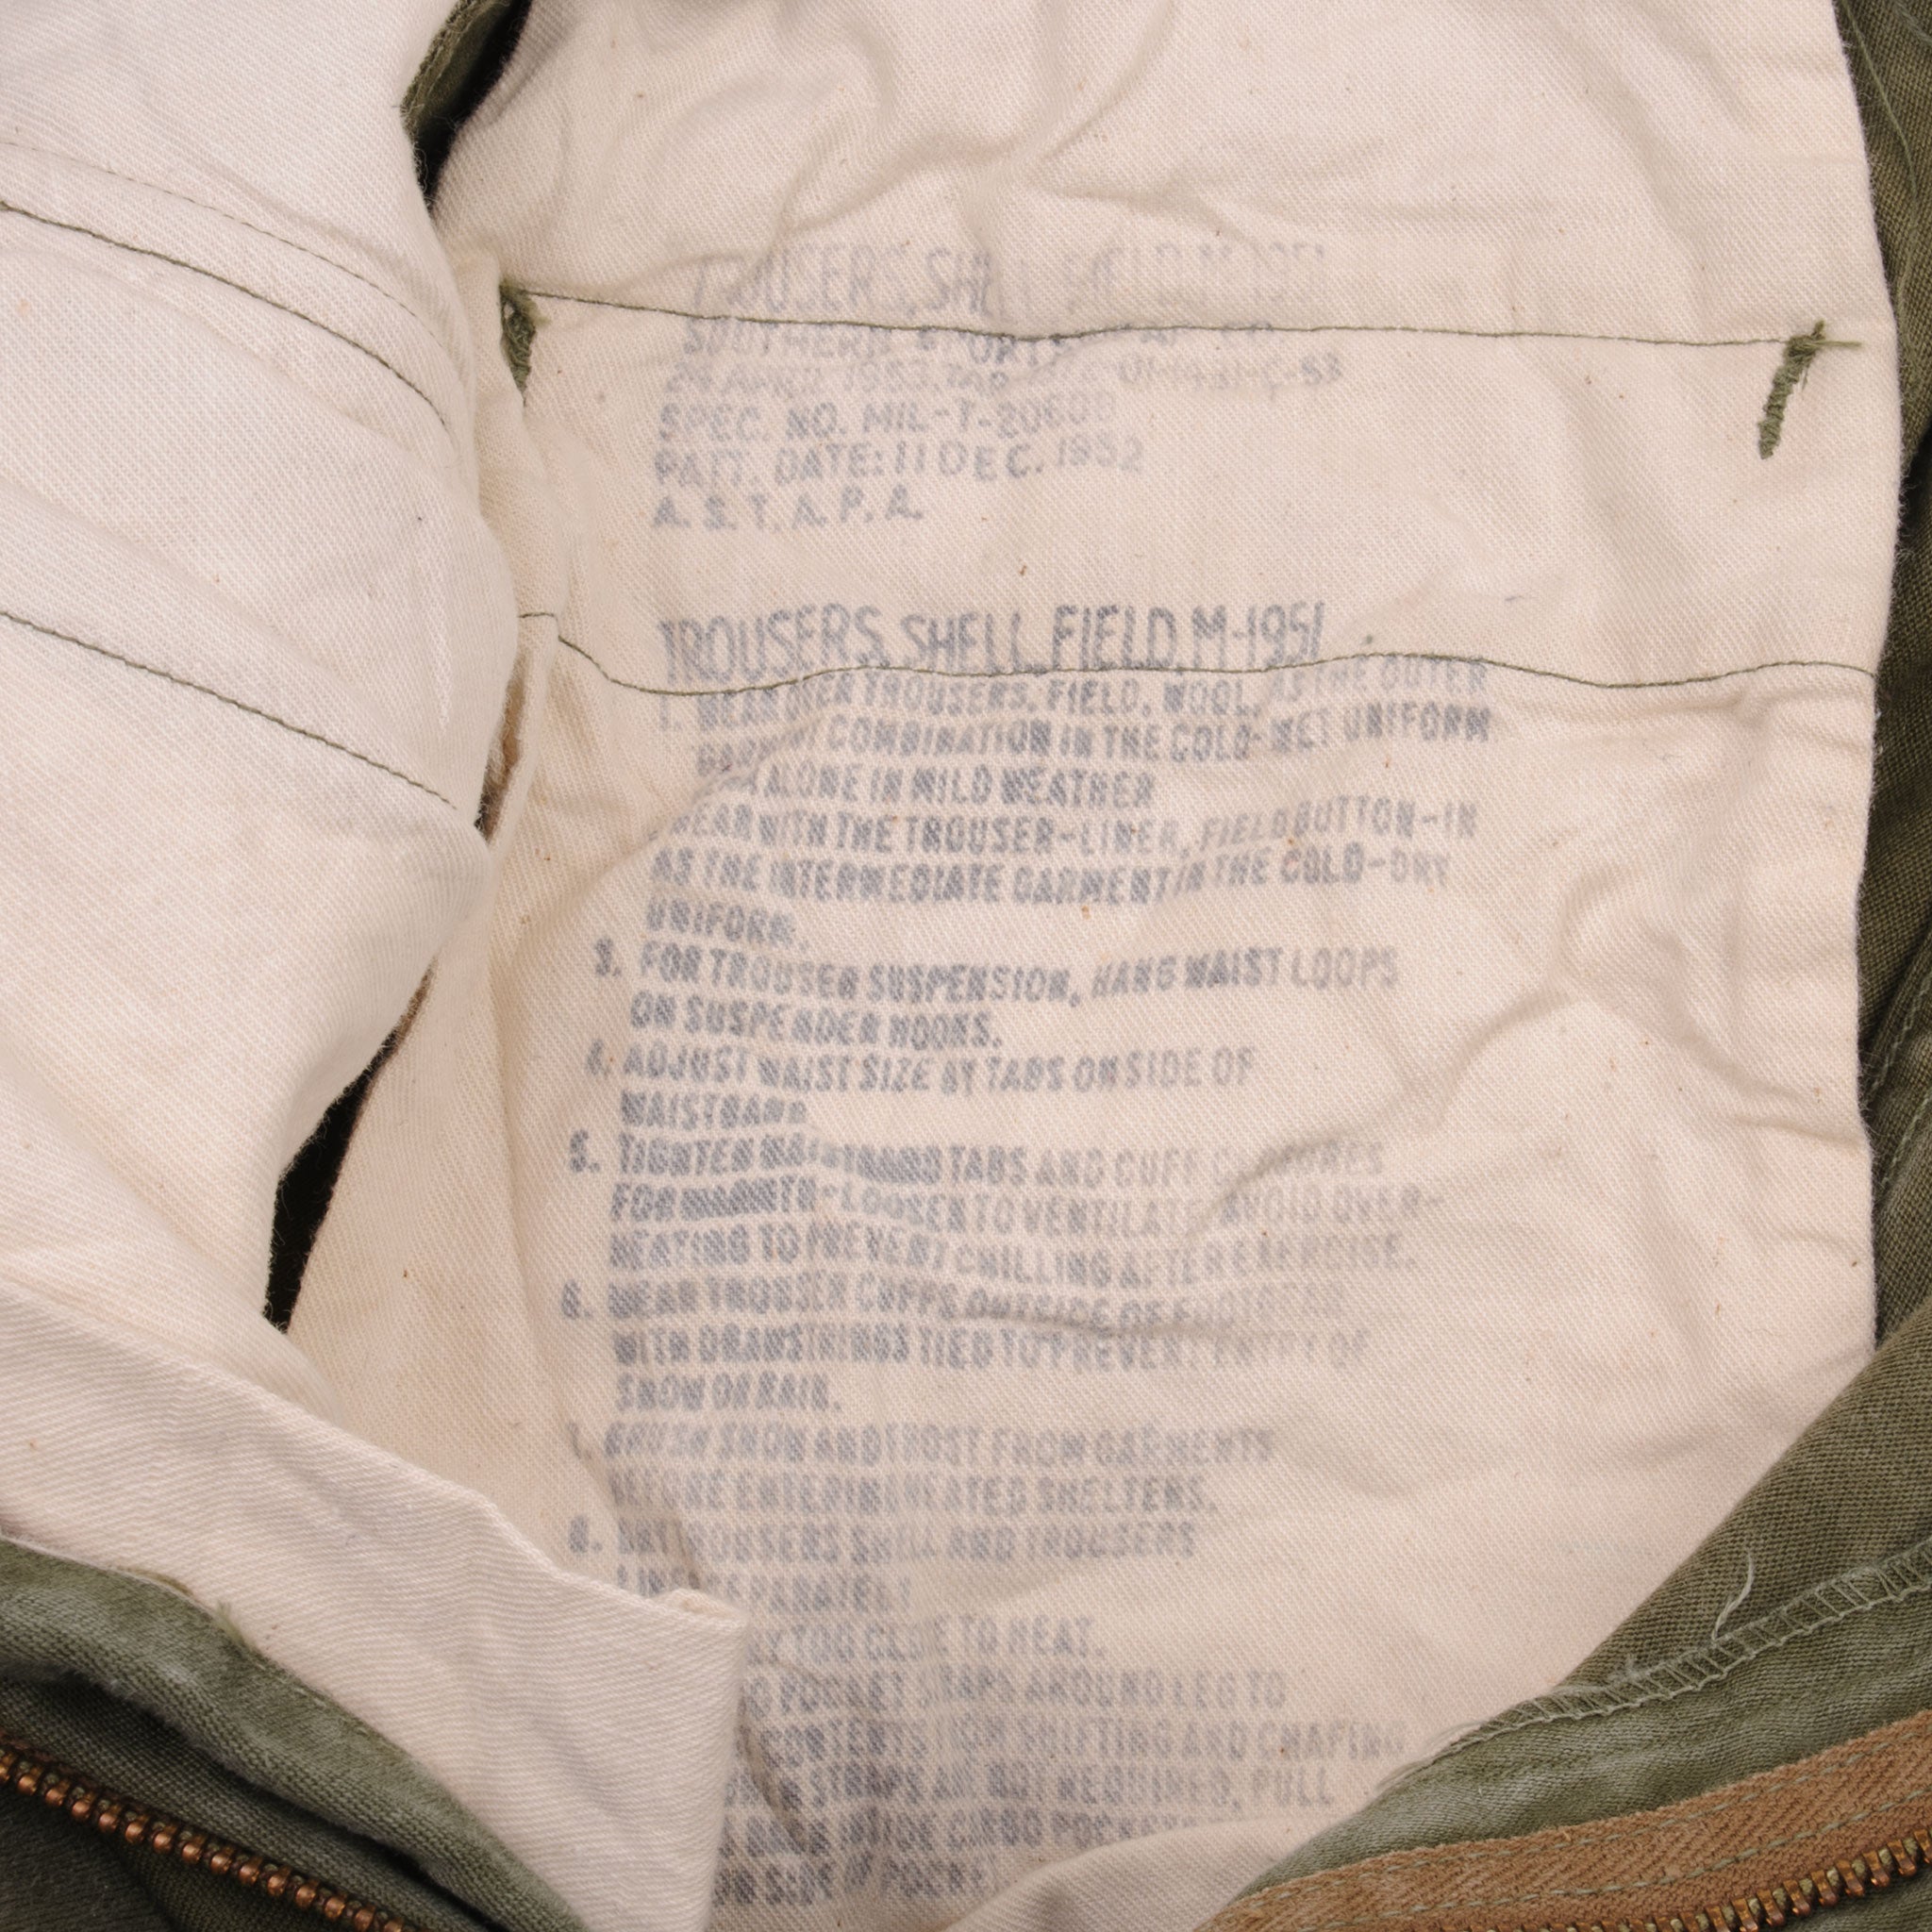 TROUSERS, SHELL, FIELD, M-1951
SOUTHERN
24 APRIL 1953, TAP
SPEC. NO. MIL-T-
PATT. DATE: 11 DEC. 1952
A. S. T. A. P. A.
TROUSERS, SHELL, FIELD, M-1951
1. WEAR OVER TROUSERS, FIELD, WOOL, AS THE OUTER
GARMENT COMBINATION IN THE COLD-WET UNIFORM
ALONE IN MILD WEATHER
WEAR WITH THE TROUSER-LINER, FIELD BUTTON-IN
AS THE INTERMEDIATE GARMENT IN THE COLD-DRY
UNIFORM.
3. FOR TROUSER SUSPENSION, HANG WAIST LOOPS
ON SUSPENDER HOOKS.
4. ADJUST WAIST SIZE BY TABS ON SIDE OF
WAISTBAND
5. TIGHTEN WAISTBAND TABS AND CUFF CLOSURES
FOR WARMTH-LOOSEN TO VENTILATE AVOID OVER-
HEATING TO PREVENT CHILLING AFTER EXERCISE.
6. WEAR TROUSER CUFFS OUTSIDE OF FOOTGEAR
WITH DRAWSTRINGS TIED TO PREVENT ENTRY OF
SNOW OR RAIN.
7. BRUSH SNOW AND FROST FROM GARMENTS
BEFORE ENTERING HEATED SHELTERS.
8. DRY TROUSERS SHELL AND TROUSERS
SEPARATELY
TOO CLOSE TO HEAT.
POCKET STRAPS AROUND LEG TO
CONTENTS FROM SHIFTING AND CHAFING
STRAPS ARE NOT REQUIRED, PULL
INSIDE CARGO POCKETS